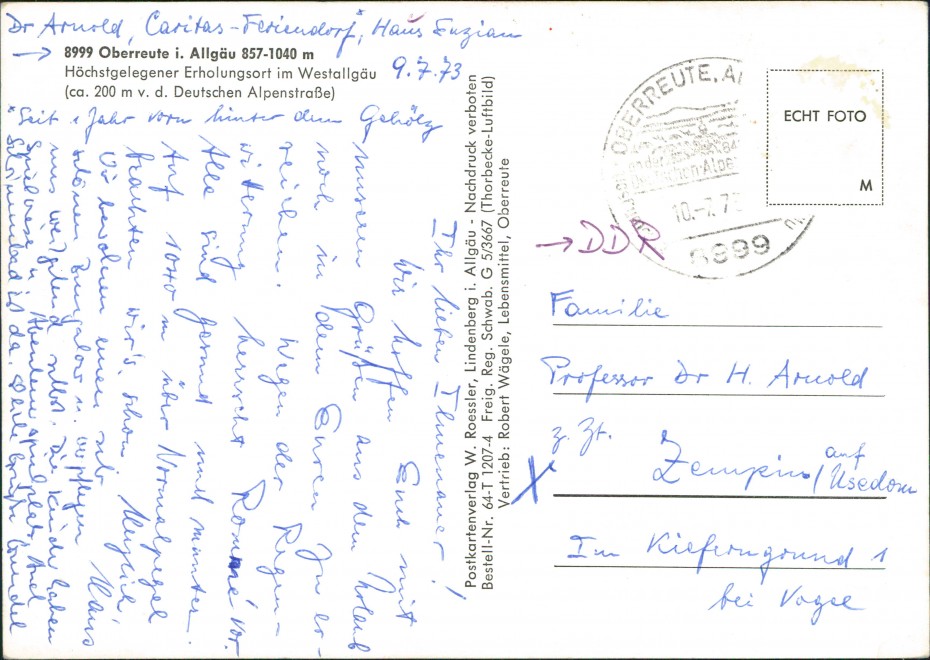 Dr Arnold, Caritas-Feriendorf*, Haus Enzian
→ 8999 Oberreute i. Allgäu 857-1040 m
Höchstgelegener Erholungsort im Westallgäu
(ca. 200 m v. d. Deutschen Alpenstraße)
9.7.73
* Seit 1 Jahr vorn hinter dem Gehölz
Ihr lieben Ilmenauer!
Wir hoffen Euch mit
unseren Grüßen aus dem Urlaub
noch in dem Euren zu er-
reichen. Wegen der Regen-
witterung herrscht Rommé vor.
Alle sind gesund und munter.
Auf 1040 m über Normalpegel
trachten wir's schon
Wir bewohnen einen sehr
schönen Bungalow u. verpflegen
uns weitgehend selbst. Die Kinder haben
Spielwiese u. Abenteuerspielplatz. Auch
Schwimmbad ist da.
Postkartenverlag W. Roessler, Lindenberg i. Allgäu - Nachdruck verboten
Bestell-Nr. 64-T 1207-4 Freig. Reg. Schwab. G 5/3667 (Thorbecke-Luftbild)
Vertrieb: Robert Wägele, Lebensmittel, Oberreute
OBERREUTE, AL
10.-7.73
8999
ECHT FOTO
M
→ DDR
Familie
Professor Dr H. Arnold
z. Zt.
Zempin / auf Usedom
X
Im Kieferngrund 1
bei Vogel